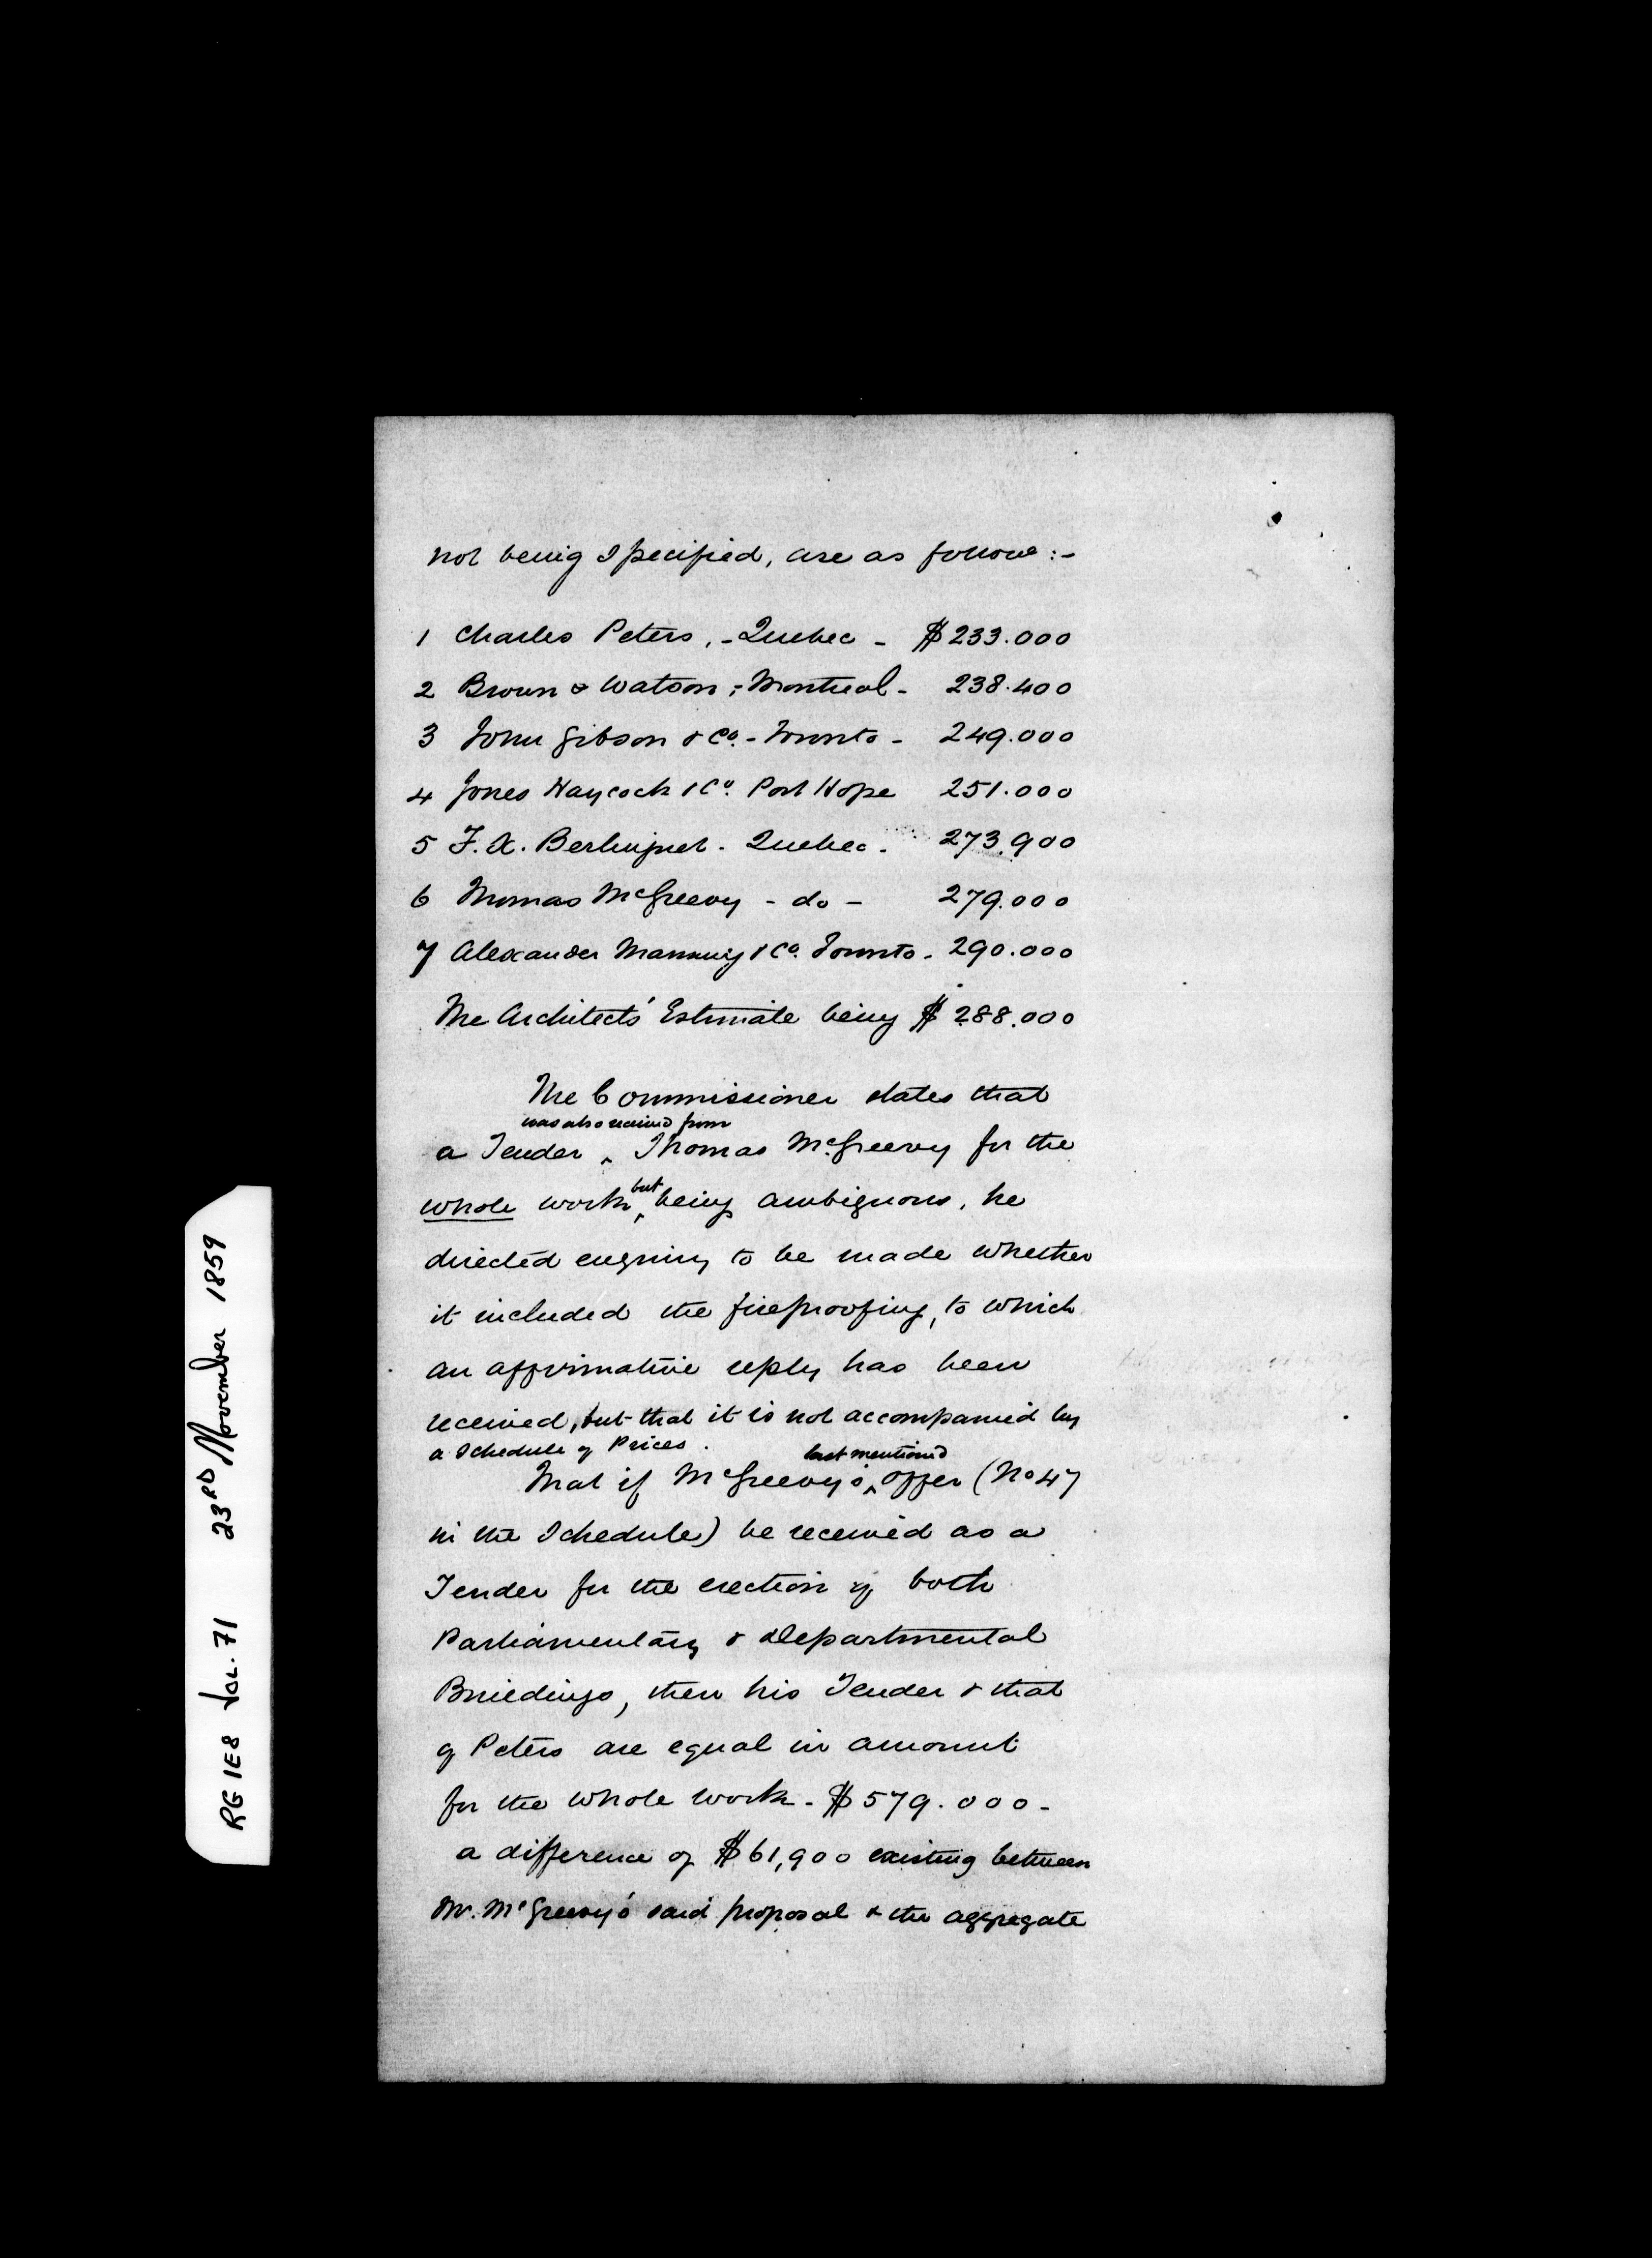 not being specified, are as follows :-
1 Charles Peters, - Quebec - $ 233.000
2 Brown & Watson, - Montreal - 238.400
3 John Gibson & Co. - Toronto - 249.000
4 Jones Haycock & Co. Port Hope 251.000
5 F. X. Berlinguet - Quebec - 273.900
6 Thomas McGreevy - do - 279.000
7 Alexander Manning & Co. Toronto - 290.000
The Architects' Estimate being $ 288.000
The Commissioner states that
was also received from
a Tender ^ Thomas McGreevy for the
but
whole work ^ being ambiguous, he
directed enquiry to be made whether
it included the fireproofing, to which
an affirmative reply has been
received, but that it is not accompanied by
a Schedule of Prices.
last mentioned
That if McGreevy's ^ offer (No 47
in the Schedule) be received as a
Tender for the erection of both
Parliamentary & Departmental
Buildings, then his Tender & that
of Peters are equal in amount
for the whole work - $ 579.000 -
a difference of $ 61,900 existing between
Mr. McGreevy's said proposal & the aggregate
RG 1E8 Vol. 71 23RD November 1859